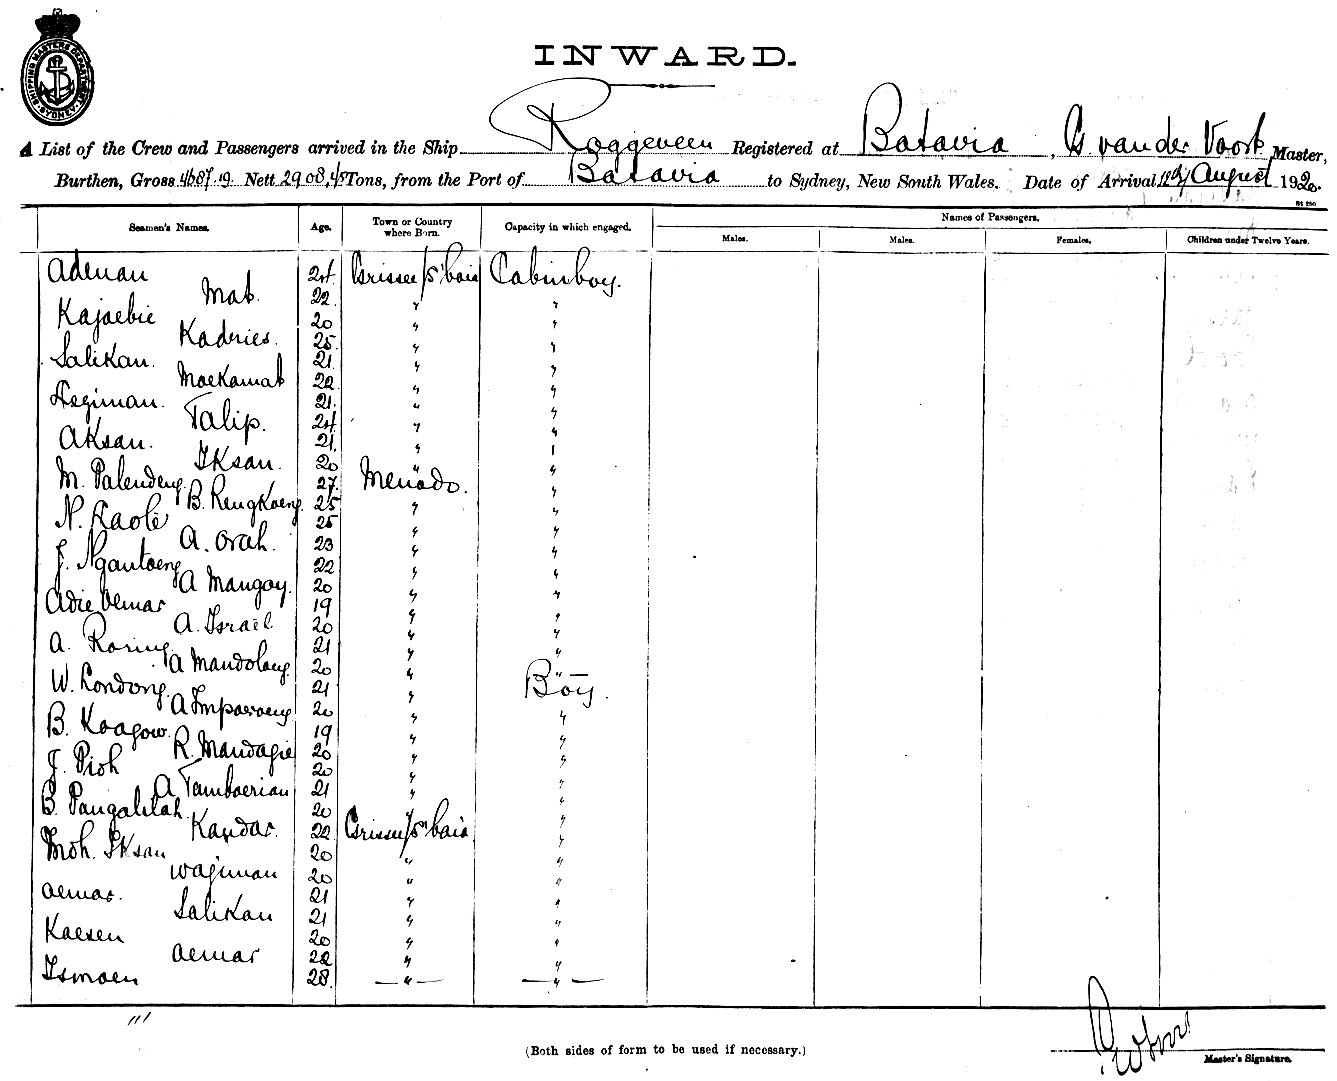 SHIPPING MASTERS DEPARTMENT SYDNEY
INWARD.
A List of the Crew and Passengers arrived in the Ship Roggeveen Registered at Batavia, G van der Voort Master,
Burthen, Gross 4687.19 Nett 2908,48 Tons, from the Port of Batavia to Sydney, New South Wales. Date of Arrival 12th August 1920.
Names of Passengers.
Seamen's Names. Age. Town or Country where Born. Capacity in which engaged. Males. Males. Females. Children under Twelve Years.
Adenan 24 Grissee/S'baia Cabinboy.
Mat. 22 " "
Kajaebie 20 " "
Kadries. 25 " "
Salikan. 21 " "
Moekamat 22 " "
Legiman. 21. " "
Talip. 24 " "
Aksan. 21. " "
Iksan. 20 " "
M. Palendeng. 27 Menado. "
B. Rengkoeng. 25 " "
N. Kaole 25 " "
A. Orah. 23 " "
J. Ngantoeng 22 " "
A Mangoy. 20 " "
Adie Oemar 19 " "
A. Israel. 20 " "
A. Roring. 21 " "
A Mandolang. 20 " "
W. Londong. 21 " Boy.
A Imparoeng 20 " "
B. Kaagow. 19 " "
R. Mandagie 20 " "
J. Pioh 20 " "
A Tamboerian 21 " "
B. Pangalilah. 20 " "
Kandar. 22 Grissee/S'baia "
Moh. Iksan 20 " "
Wagiman 20 " "
Oemar. 21 " "
Salikan 21 " "
Kaesen 20 " "
Oemar 22 " "
Ismoen 28. — " — — " —
(Both sides of form to be used if necessary.)
Master's Signature.